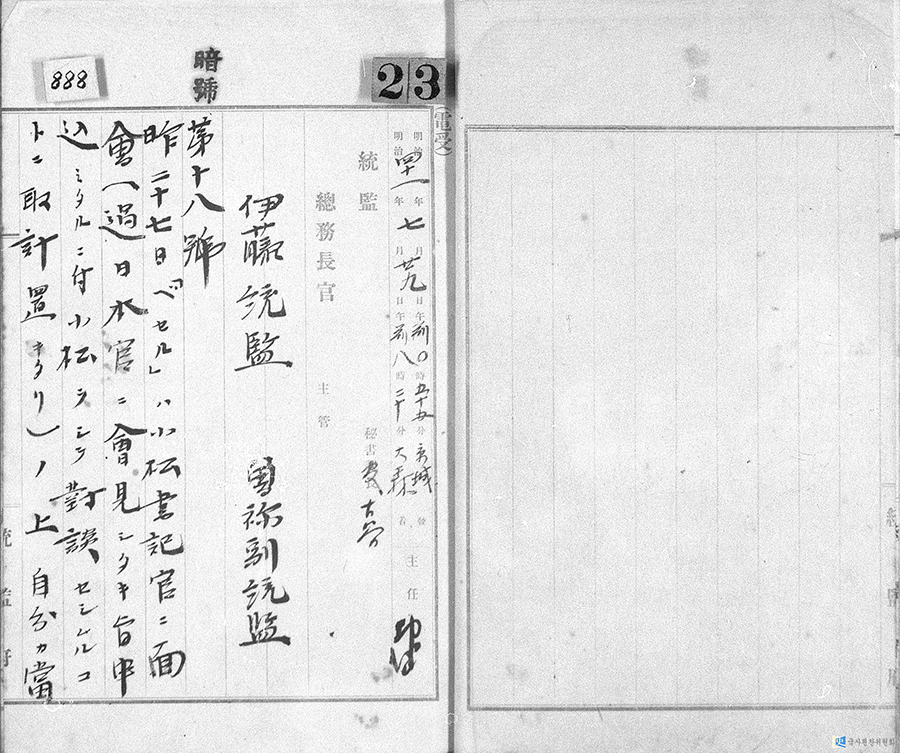 暗號
888
23
(電受)
明治四十一年七月廿九日午前〇時五十五分京城發
明治 年 月 日午前八時二十分大森着
主任
統監
秘書
總務長官
主管
伊藤統監
曾祢副統監
第十八號
昨二十七日「ベセル」ハ小松書記官ニ面
會(過日本官ニ會見シタキ旨申
込ミタルニ付小松ヲシテ對談セシムルコ
トニ取計置キタリ)ノ上自分カ當
統監府
국사편찬위원회